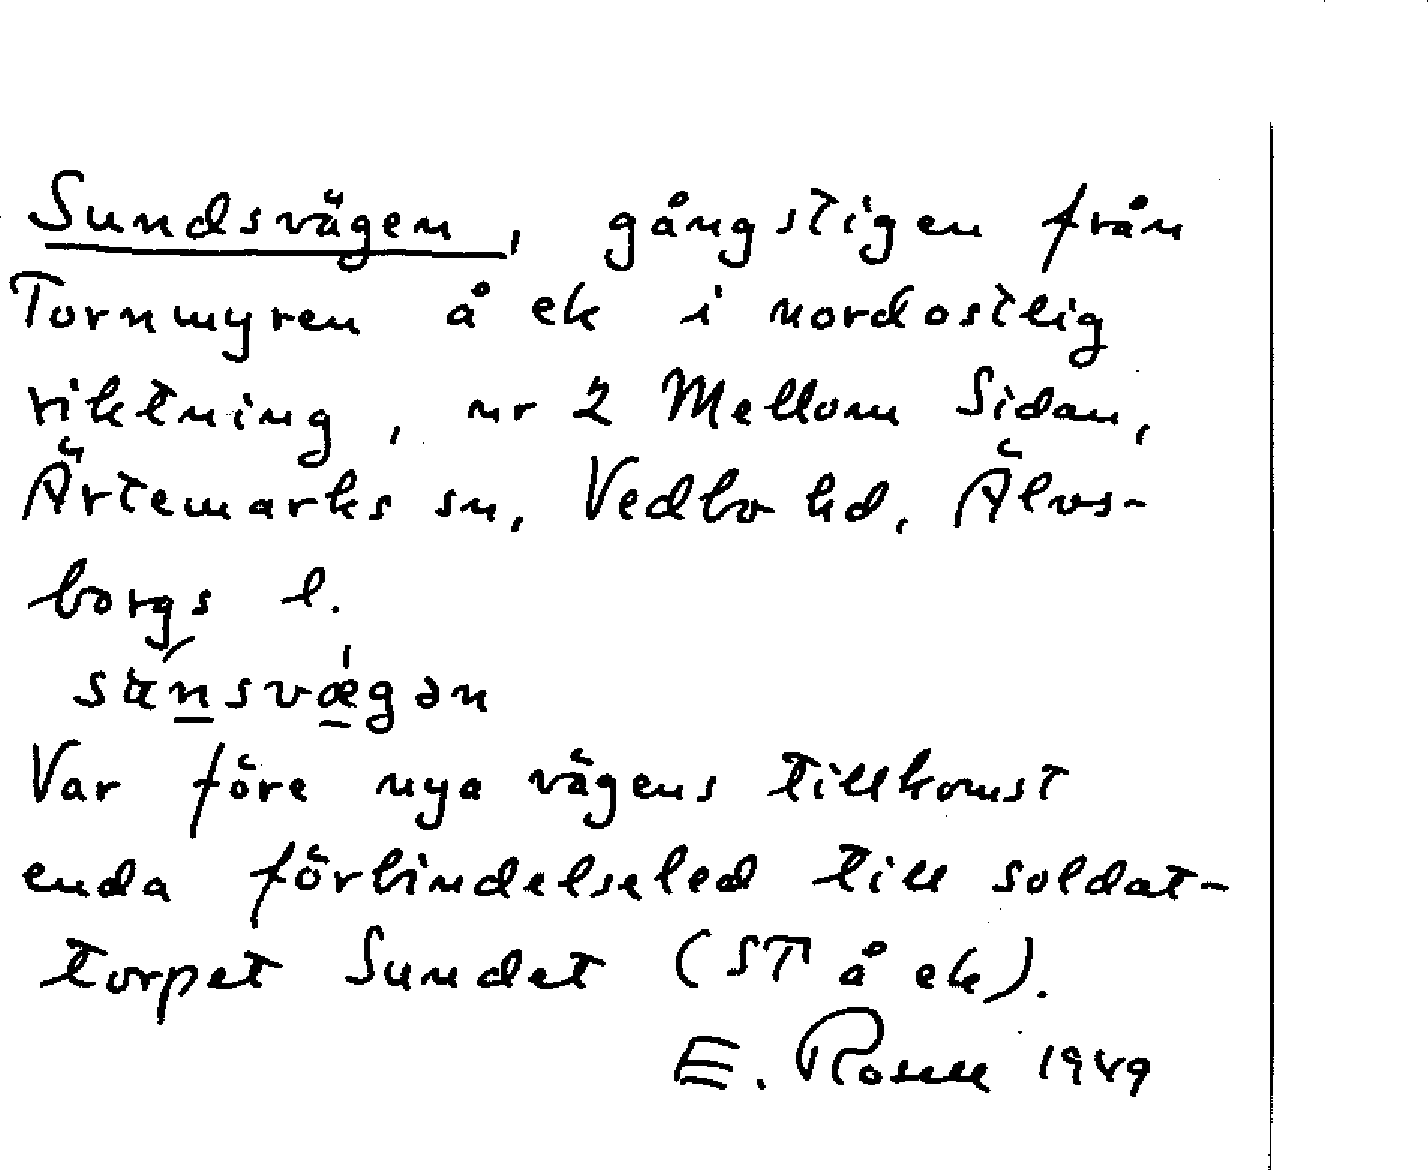 Sundsvägen, gångstigen från
Tornmyren å ek i nordostlig
riktning, nr 2 Mellom Sidan,
Ärtemarks sn, Vedbo hd, Älvs-
borgs l.
Var före nya vägens tillkomst
enda förbindelseled till soldat-
torpet Sundet (ST å ek).
E. Rosell 1949